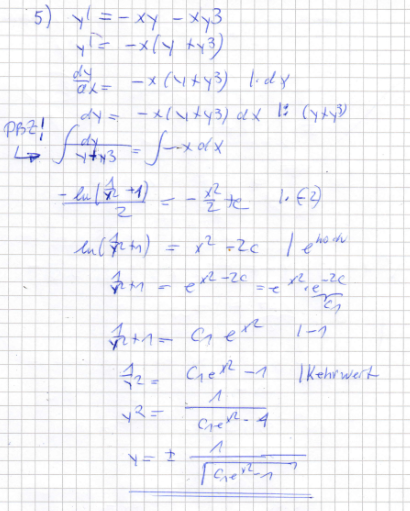 5) y' = -xy - xy3
y' = -x(y + y3)
dy/dx = -x(y+y3) |· dx
dy = -x(y+y3) dx |: (y+y3)
PBZ! ↳ ∫ dy/(y+y3) = ∫ -x dx
-ln(1/y2 + 1)/2 = -x²/2 + c |· (-2)
ln(1/y2 + 1) = x² - 2c | e hoch
1/y2 + 1 = e^(x² - 2c) = e^(x²) · e^(-2c)
c1
1/y2 + 1 = c1 e^(x²) | -1
1/y2 = c1 e^(x²) - 1 | Kehrwert
y2 = 1/(c1 e^(x²) - 1)
y = ± 1/√(c1 e^(x²) - 1)